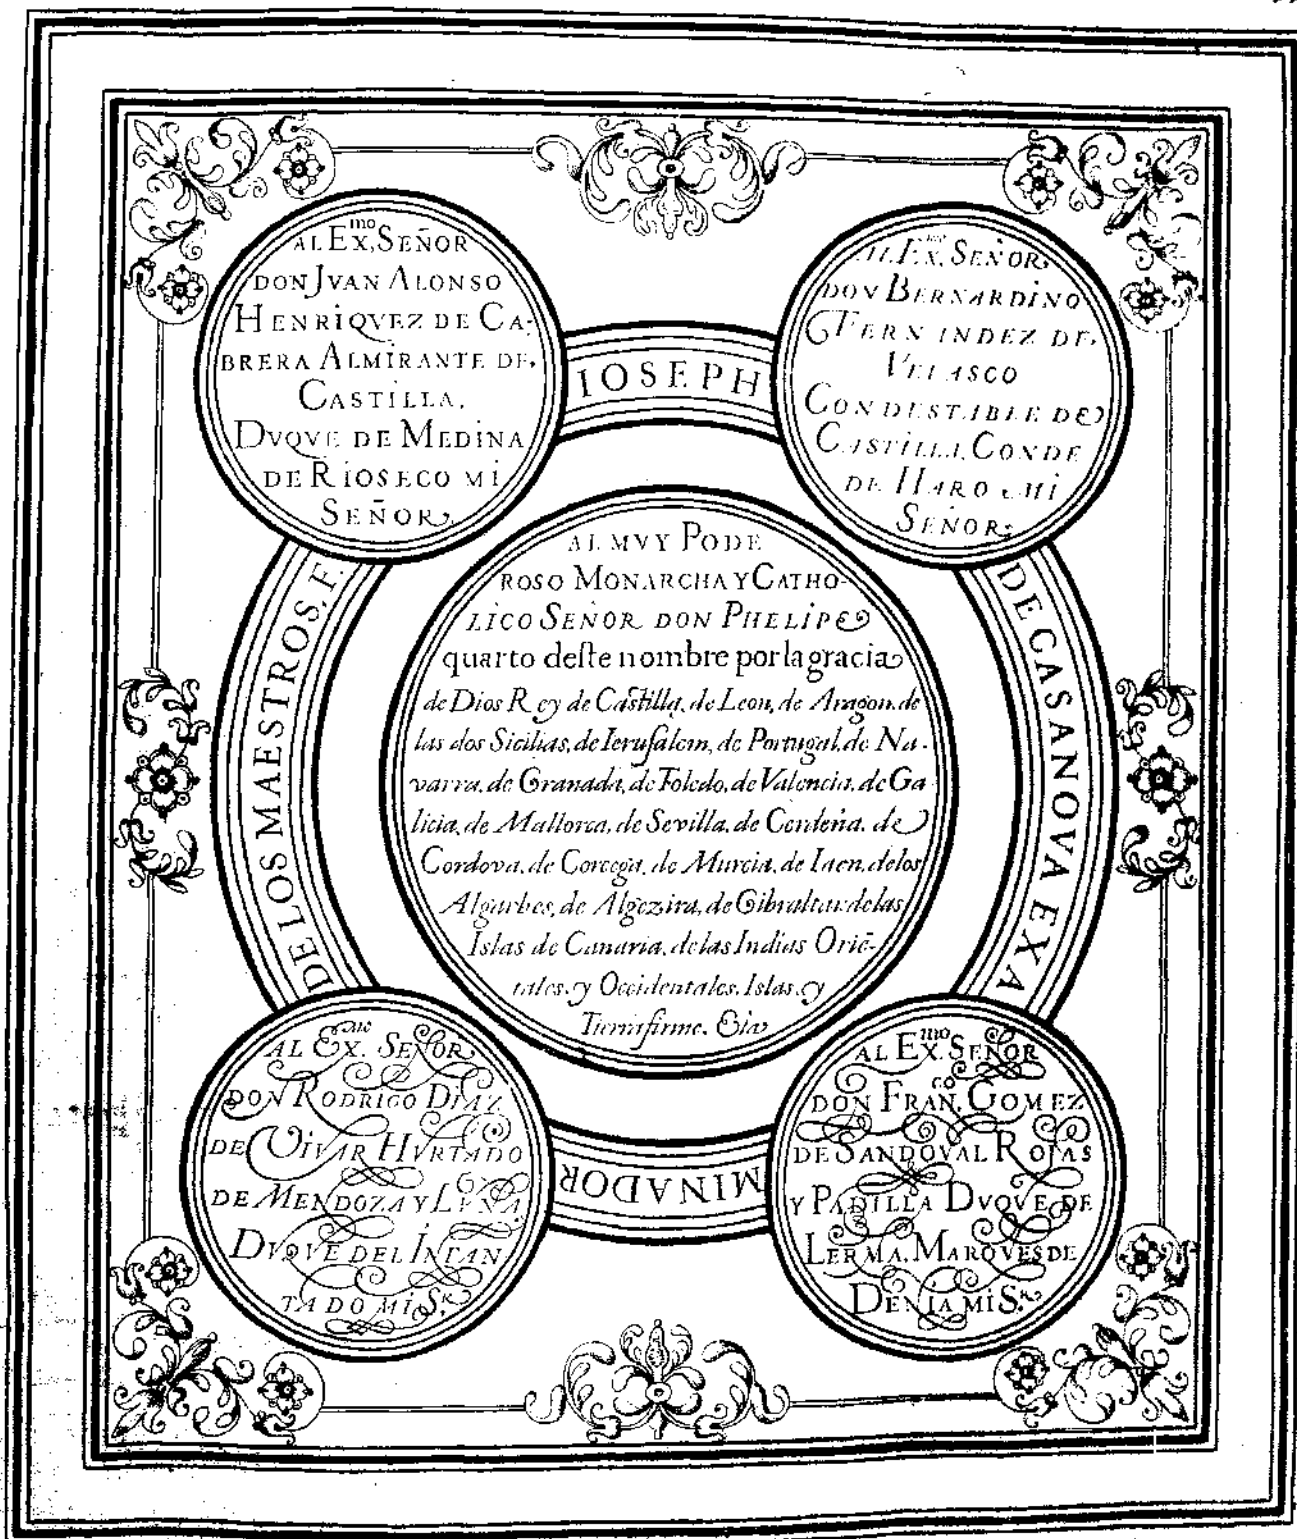 AL EX.mo SEÑOR
DON JVAN ALONSO
HENRIQVEZ DE CA-
BRERA ALMIRANTE DE
CASTILLA,
DVQVE DE MEDINA
DE RIOSECO MI
SEÑOR,
AL EX.mo SEÑOR,
DON BERNARDINO
FERNANDEZ DE,
VELASCO
CONDESTABLE DE
CASTILLA, CONDE
DE HARO MI
SEÑOR,
IOSEPH
DE CASANOVA EXA
MINADOR
DE LOS MAESTROS. F.
AL MVY PODE
ROSO MONARCHA Y CATHO-
LICO SEÑOR DON PHELIPE
quarto deste nombre por la gracia
de Dios Rey de Castilla, de Leon, de Aragon, de
las dos Sicilias, de Ierusalem, de Portugal, de Na-
varra, de Granada, de Toledo, de Valencia, de Ga
licia, de Mallorca, de Sevilla, de Cerdeña, de
Cordova, de Corcega, de Murcia, de Iaen, de los
Algarbes, de Algezira, de Gibraltar, de las
Islas de Canaria, de las Indias Oriē-
tales, y Occidentales, Islas, y
Tierra firme. &la
AL EX.mo SEÑOR
DON RODRIGO DIAZ
DE VIVAR HVRTADO
DE MENDOZA Y LVNA,
DVQVE DEL INFAN
TADO MI S.R
AL EX.mo SEÑOR
DON FRAN.CO GOMEZ
DE SANDOVAL ROJAS
Y PADILLA DVQVE DE
LERMA, MARQVES DE
DENIA MI S.R